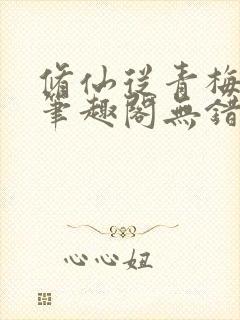 脩仙從青梅
筆趣閣無錯
心心妞